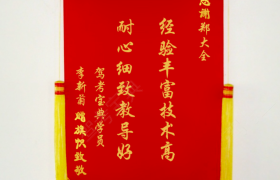 感谢郑大全
经验丰富技术高
耐心细致教导好
驾考宝典学员
李新菊
敬致